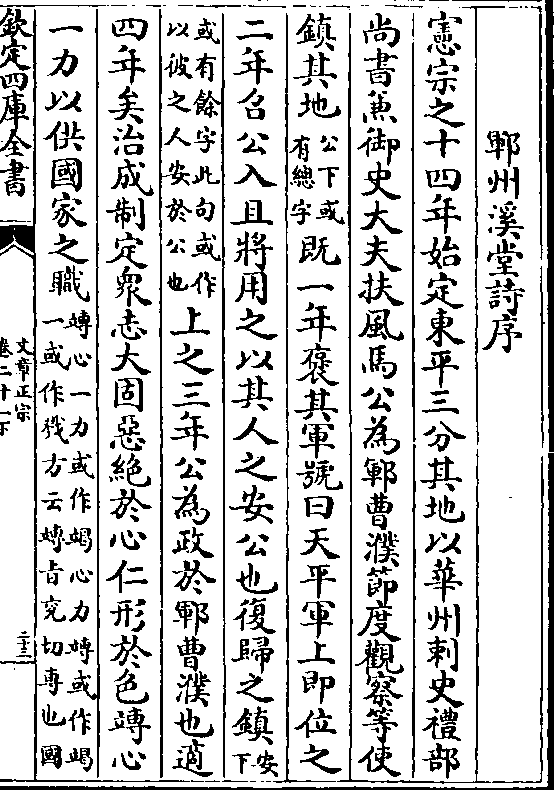 鄆州溪堂詩序
憲宗之十四年始定東平三分其地以華州刺史禮部
尚書兼御史大夫扶風馬公為鄆曹濮節度觀察等使
鎮其地公下或有總字既一年褒其軍號曰天平軍上即位之
二年召公入且將用之以其人之安公也復歸之鎮安下
或有餘字此句或作以彼之人安於公也上之三年公為政於鄆曹濮也適
四年矣治成制定眾志大固惡絶於心仁形於色竱心
一力以供國家之職竱心一力或作竭心力竱或作竭一或作戮方云竱旨兖切專也國
欽定四庫全書
文章正宗
卷二十一下
二十三